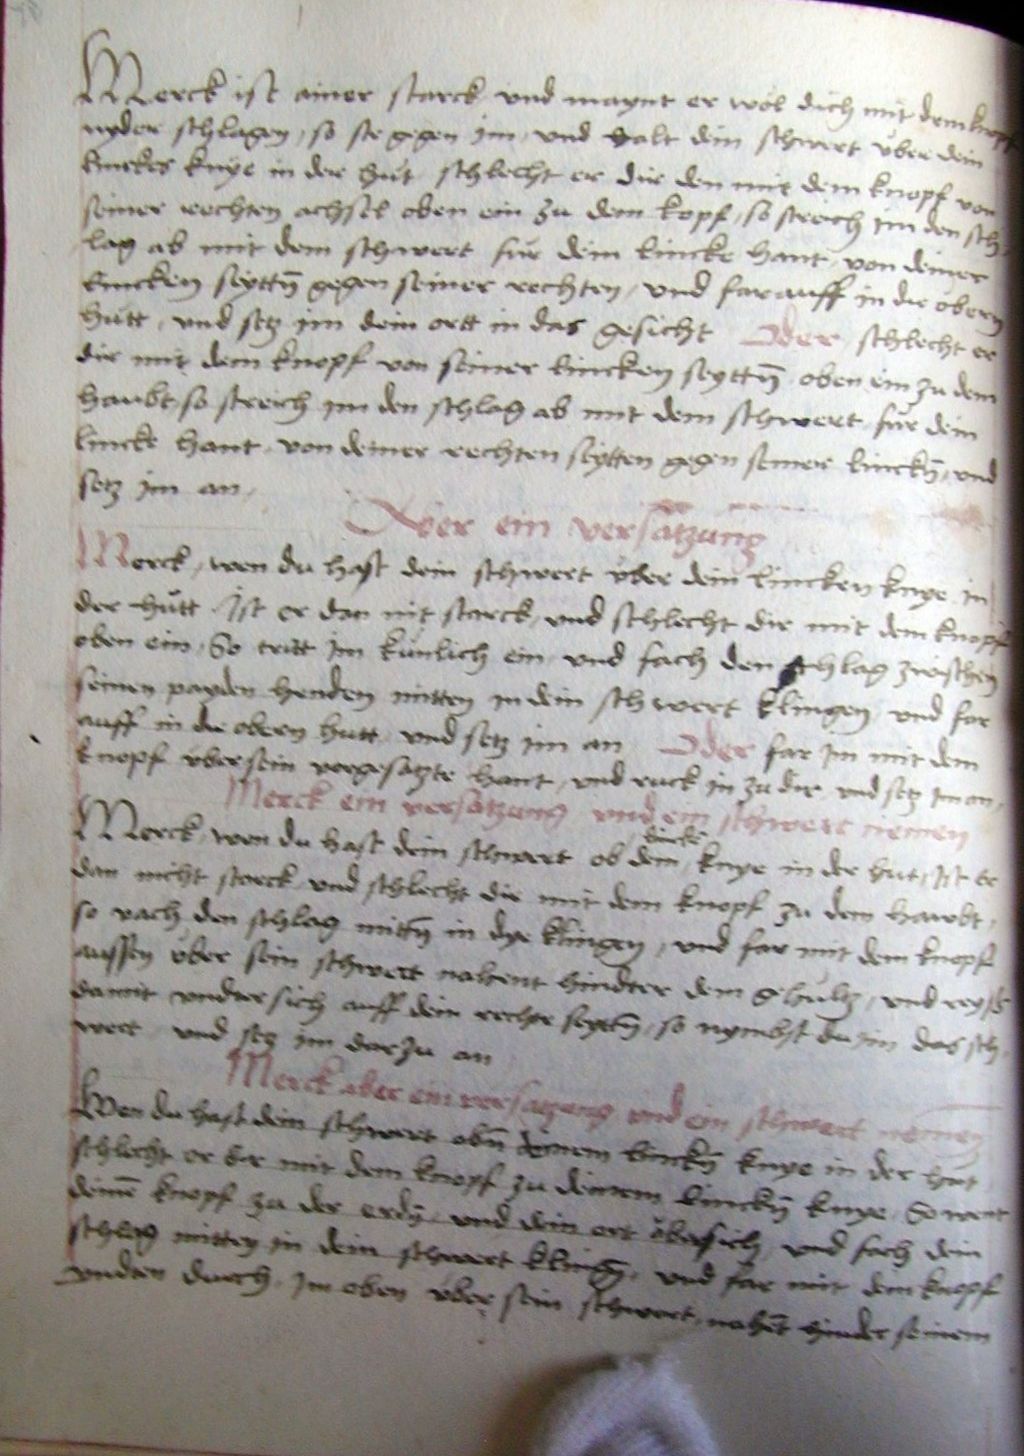 Merck ist ainer starck und maynt er wöl dich mit dem knopff
nyder schlagen / so ste gegen im / und halt dein schwert über dein
linckes knye in der hut / schlecht er dir den mit dem knopf von
seiner rechten achsel oben ein zu dem kopf / so streich im den sch-
lag ab mit dem schwert für dein lincke hant / von deiner
lincken seyttñ gegen seiner rechten / und far auff in die obern
hütt / und setz im dein ortt in das gesicht Oder schlecht er
dir mit dem knopf von seiner lincken seyttñ oben ein zu dem
haubt / so streich im den schlag ab mit dem schwert für dein
linck hant / von deiner rechten seytten gegen seiner linckñ / und
setz im an /
Aber ein versatzung
Merck / wen du hast dein schwert über dein lincken knye in
der hütt Ist er dan nit starck / und schlecht dir mit dem knopf
oben ein / So tritt im künlich ein und fach den schlag zwischen
seinen payden henden mitten in dein schwert klingen und far
auff in die obern hutt / und setz im an Oder far im mit dem
knopf über sein vorgesatzte hant / und ruck in zu dir und setz im an /
Merck ein versatzung und ein schwert niemen
Merck / wen du hast dein schwert ob dein lincke knye in der hut / Ist er
dan nicht starck und schlecht dir mit dem knopf zu dem haubt /
so vach den schlag mittñ in dye klingen / und far mit dem knopf
aussen über sein schwert nahent hindter dem gehültz / und reyß
damit undter sich auff dein rechte seyttñ / so nymbst du im das sch-
wert und setz im dar zu an
Merck aber ein versatzung und ein schwert nemen
Wen du hast dein schwert obñ deinem linckñ knye in der hut
schlecht er dir mit dem knopf zu deinem linckñ knye / So went
deinē knopf zu der erdñ / und dein ort übersich / und fach dein
schlag mitten in dein schwert klingñ / und far mit dem knopf
undten durch / Im oben über sein schwert / nahēt hinder seinem